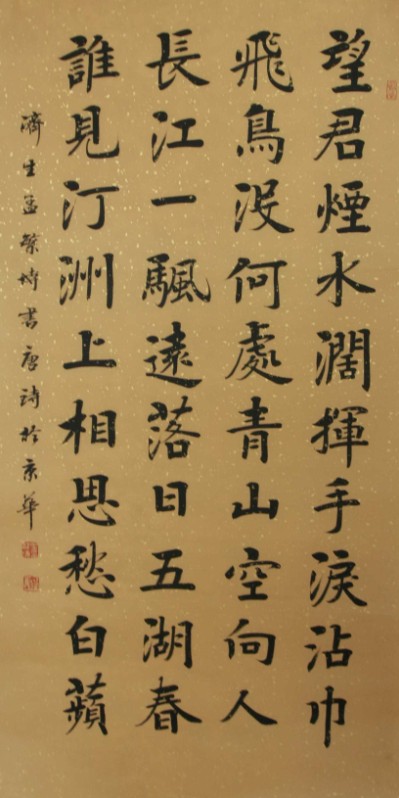 望君煙水濶揮手淚沾巾
飛鳥没何處青山空向人
長江一颿遠落日五湖春
誰見汀洲上相思愁白蘋
濟生孟繁博書唐詩於京華